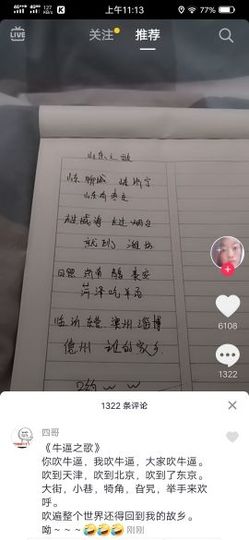 上午11:13
77%
LIVE
关注
推荐
山东之歌
山东 聊城 续 济宁
山东有枣庄
赶威海 赶烟台
就到 潍坊
日照 莱芜 醉 泰安
菏泽吃羊店
临沂 东营 滨州 淄博
德州 谁的家乡
6108
1322
1322 条评论
四哥
《牛逼之歌》
你吹牛逼,我吹牛逼,大家吹牛逼。
吹到天津,吹到北京,吹到了东京。
大街,小巷,犄角,旮旯,举手来欢
呼。
吹遍整个世界还得回到我的故乡。
呦~~~🤣🤣🤣 刚刚